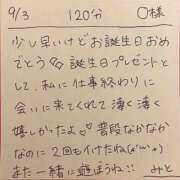 9/3 120分 〇様
少し早いけどお誕生日おめ
でとう お誕生日プレゼントと
して、私に仕事終わりに
会いに来てくれて凄く凄く
嬉しかったよ♡ 普段なかなか
なのに2回も付けたね(*´ω`*)
また一緒に遊ぼうね♡ みと